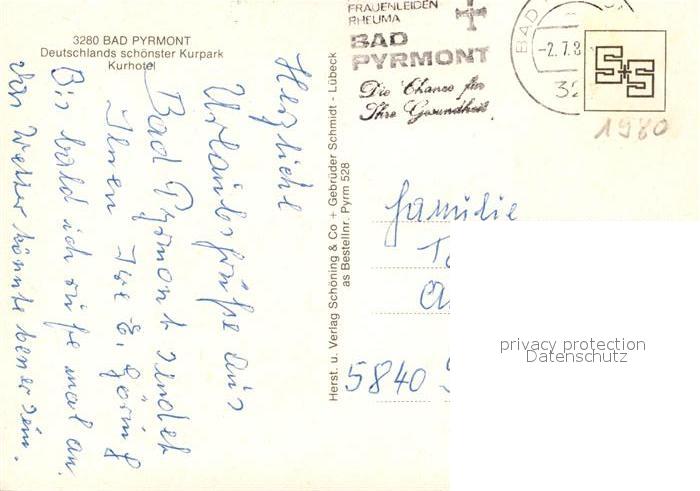 3280 BAD PYRMONT
Deutschlands schönster Kurpark
Kurhotel
Herzliche
Urlaubsgrüße aus
Bad Pyrmont sendet
Ihnen Ihre E.
Bis bald ich rufe mal an.
das Wetter könnte besser sein.
Herst. u. Verlag Schöning & Co + Gebrüder Schmidt - Lübeck
as Bestellnr. Pyrm 528
FRAUENLEIDEN
RHEUMA
BAD
PYRMONT
Die Chance für
Ihre Gesundheit.
BAD
-2.7.8
32
S+S
1980
Familie
5840
privacy protection
Datenschutz